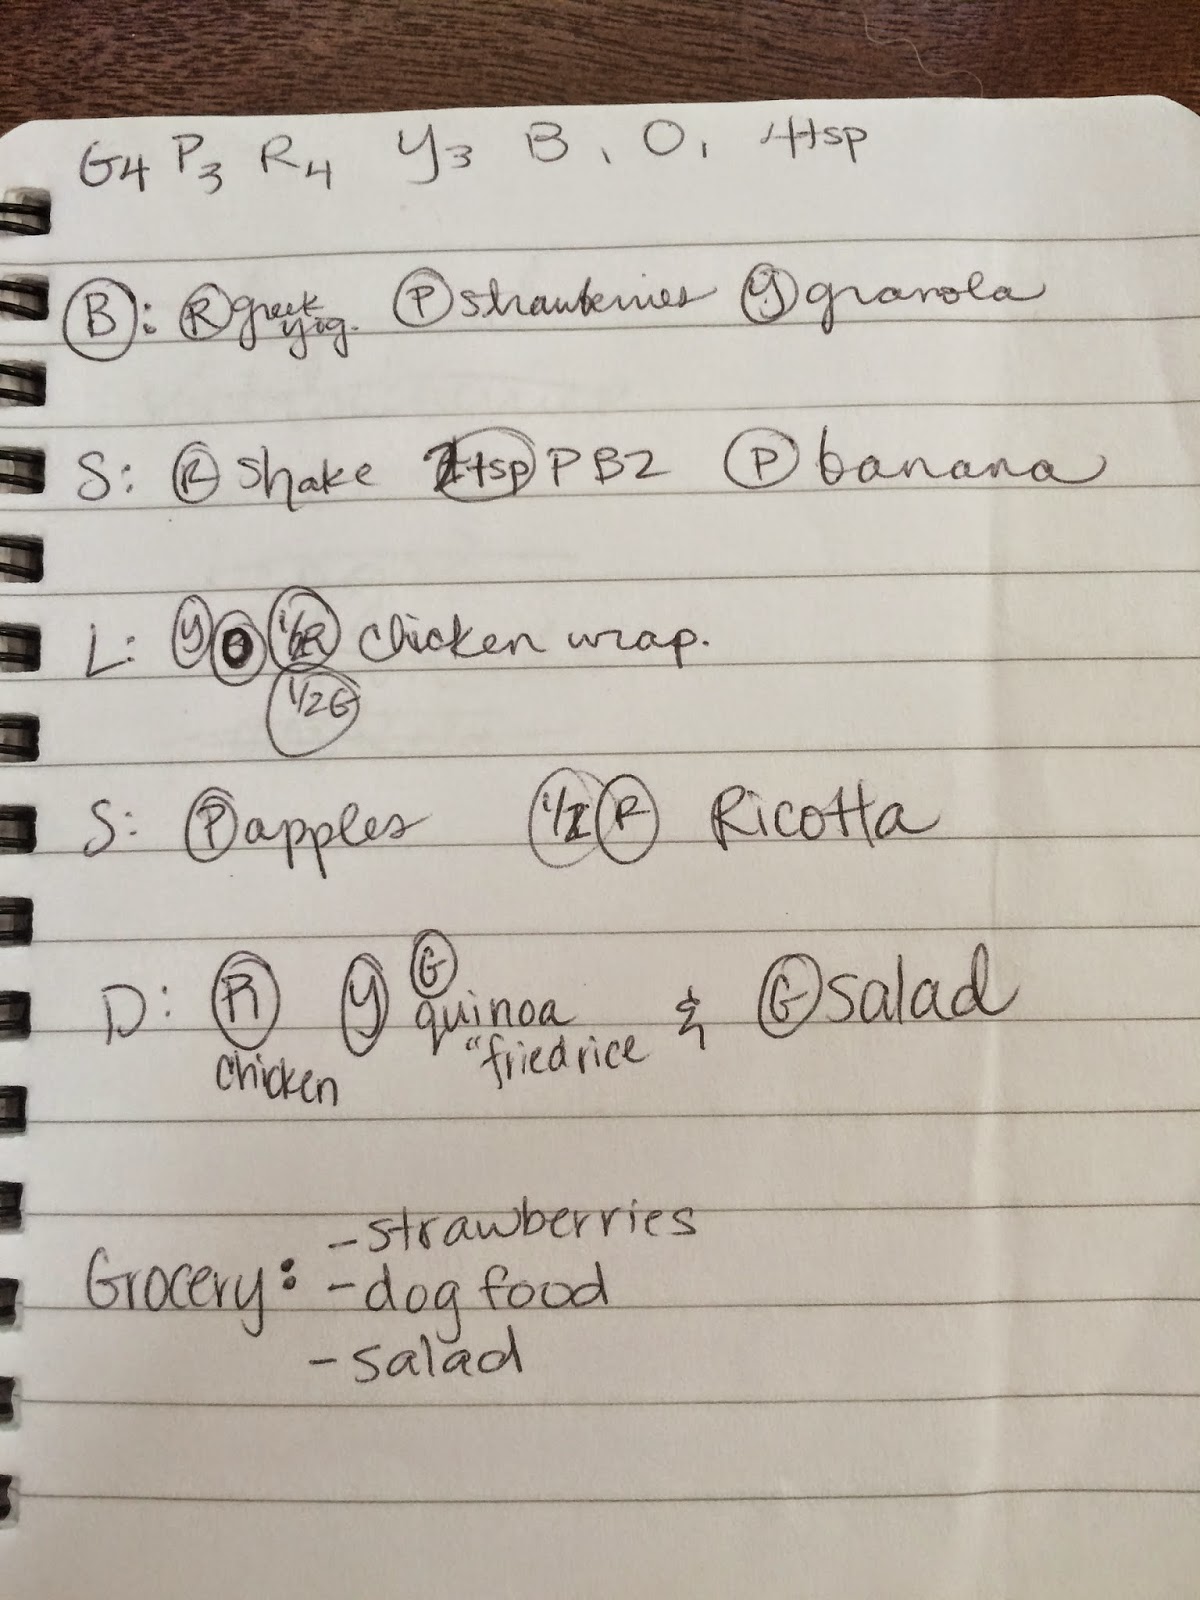 G4 P3 R4 Y3 B1 O1 4tsp
B: R greek yog. P strawberries Y granola
S: R shake tsp PB2 P banana
L: Y O 1/2R chicken wrap.
1/2G
S: P apples 1/2 R Ricotta
G
D: R Y quinoa & G salad
chicken "fried rice
- strawberries
Grocery: - dog food
- salad